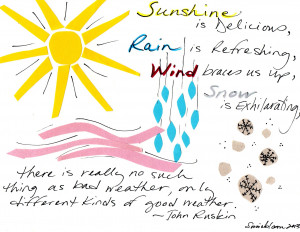 Sunshine
is Delicious,
Rain is Refreshing,
Wind braces us up,
Snow
is Exhilarating,
there is really no such
thing as bad weather, only
different kinds of good weather.
~ John Ruskin